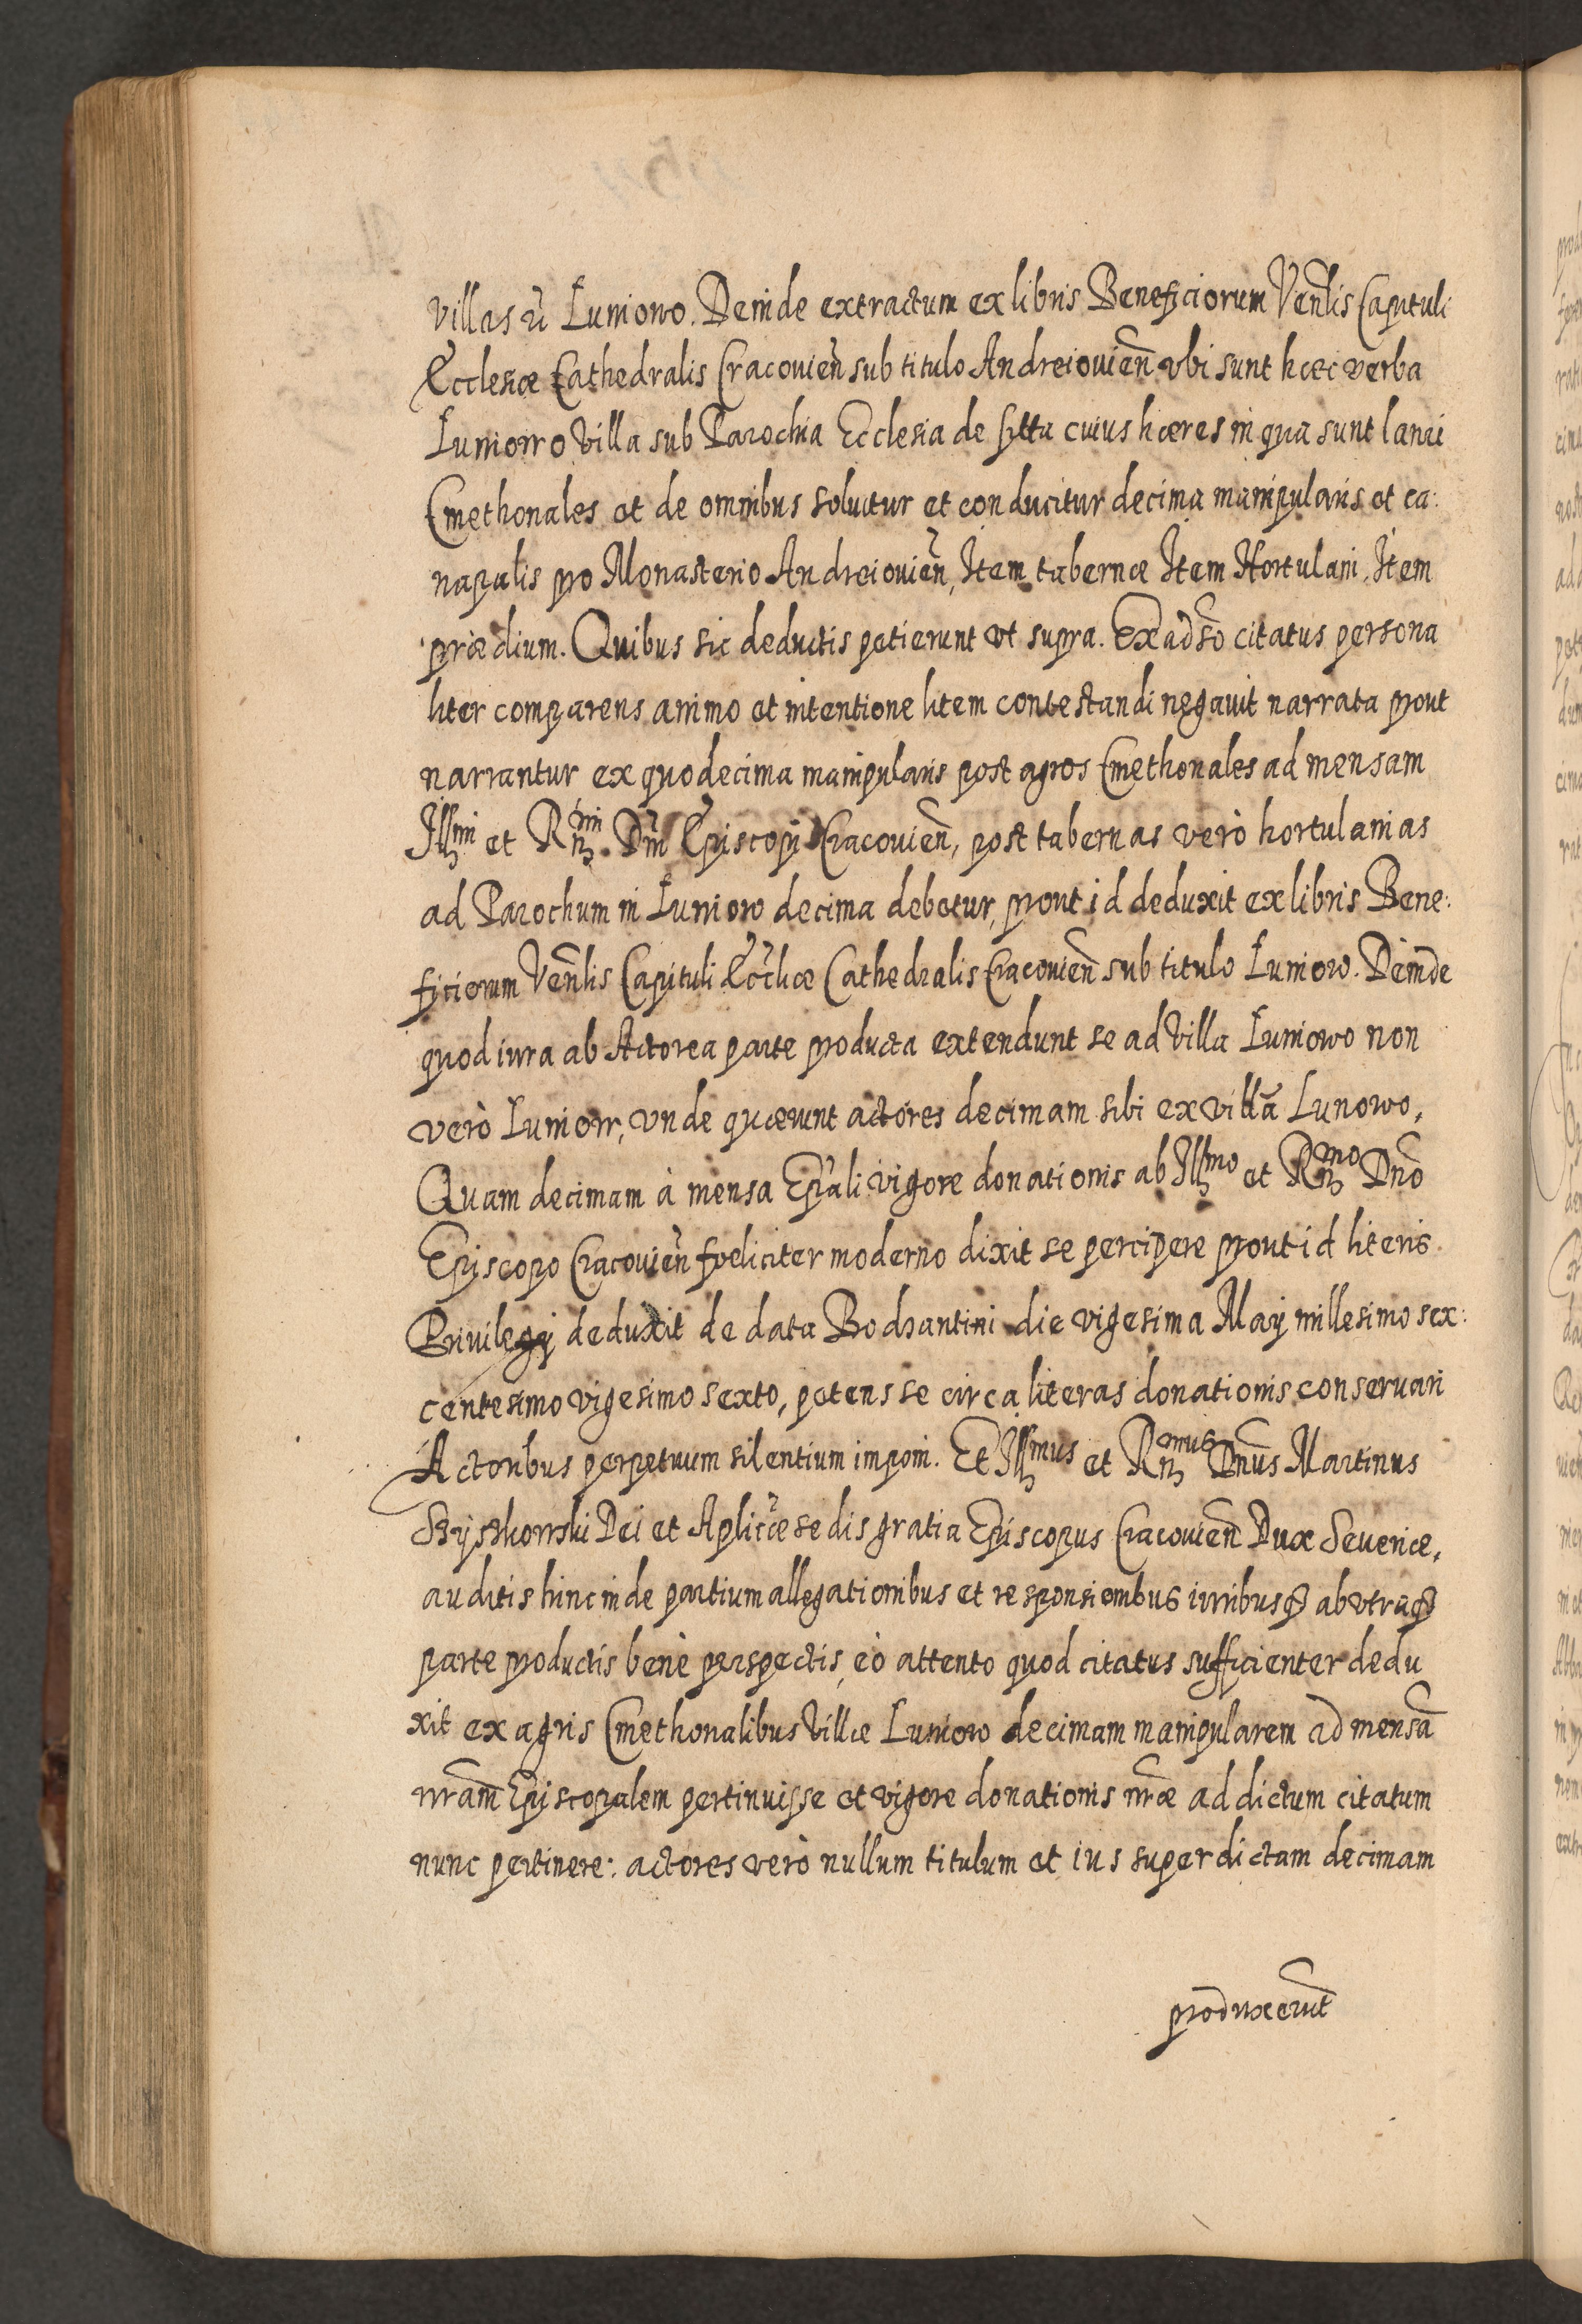 villas ũ Luniowo. Deinde extractum ex libris Beneficiorum Venlis Capituli
Ecclesiæ Cathedralis Cracovien̄ sub titulo Andreiovien̄ vbi sunt hæc verba
Luniowo Villa sub Parochia Ecclesia de cuius hæres in qua sunt lanei
Cmethonales et de omnibus soluitur et conducitur decima manipularis et ca:
napalis pro Monasterio Andreiovien̄, Item tabernæ Item Hortulani, Item
prædium. Quibus sic deductis petierunt vt supra. Ex adṽso citatus persona
liter comparens animo et intentione litem contestandi negauit narrata prout
narrantur ex quo decima manipularis post agros Cmethonales ad mensam
Illmi et Rn̄mi Dn̄i Episcopi Cracovien̄, post tabernas verò hortulanias
ad Parochum in Luniow decima debetur, prout id deduxit ex libris Bene:
ficiorum Ven̄lis Capituli Eccliæ Cathedralis Cracovien̄ sub titulo Luniow. Deinde
quod iura ab Actorea parte producta extendunt se ad Villa Luniowo non
verò Luniow, vnde quærunt actores decimam sibi ex villã Lunowo,
Quam decimam à mensa Ep̄ali vigore donationis ab Illmo et Rn̄mo Dn̄o
Episcopo Cracovien̄ fœliciter moderno dixit se percipere prout id literis
Privilegij deduxit de data Bodzantini die vigesima Maij millesimo sex:
centesimo vigesimo sexto, petens se circa literas donationis conseruari
Actoribus perpetuum silentium imponi. Et Illmus et Rn̄mus Dn̄us Martinus
Szyszkowski Dei et Apl̄icæ sedis gratia Episcopus Cracovien̄ Dux Seueriæ,
auditis hinc inde partium allegationibus et responsionibus iuribusq; ab vtraq;
parte productis benè perspectis, eò attento quod citatus sufficienter dedu
xit ex agris Cmethonalibus Villæ Luniow decimam manipularem ad mensã
nr̄am Episcopalem pertinuisse et vigore donationis nr̄æ ad dictum citatum
nunc pertinere: actores verò nullum titulum et ius super dictam decimam
produxerũt